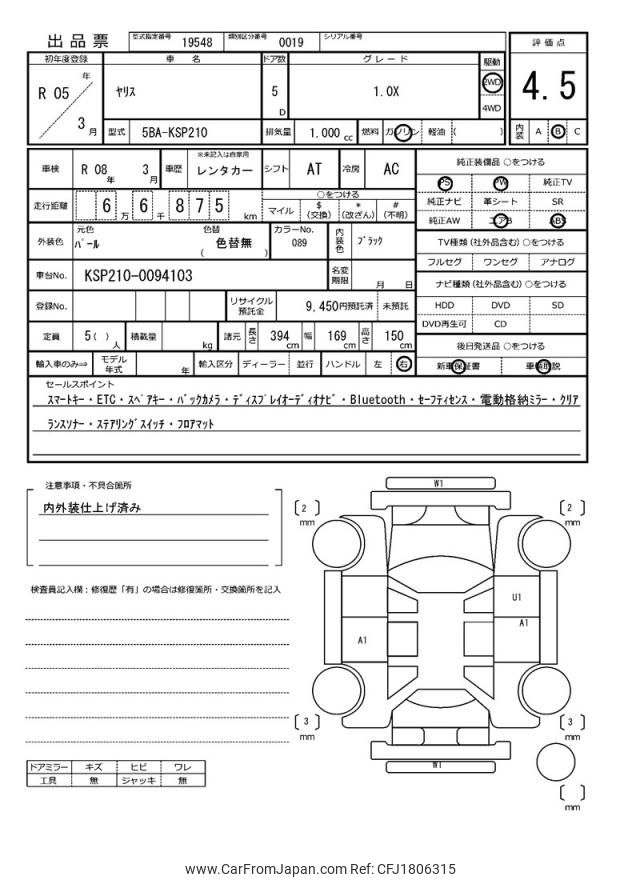 出品票 型式指定番号 19548 類別区分番号 0019 シリアル番号
評価点
4.5
内装 A B C
初年度登録 車名 ドア数 グレード 駆動
R 05 年 3 月 ヤリス 5 D 1.0X 2WD 4WD
型式 5BA-KSP210 排気量 1.000 cc 燃料 ガソリン 軽油 ( )
車検 R 08 年 3 月 車歴 ※未記入は自家用 レンタカー シフト AT 冷房 AC
走行距離 6 万 6 千 8 7 5 km ○をつける マイル $ (交換) * (改ざん) # (不明)
外装色 元色 パール 色替 色替無 ( ) カラーNo. 089 内装色 ブラック
車台No. KSP210-0094103 名変期限 月 日
登録No. リサイクル預託金 9,450円預託済 未預託
定員 5 ( ) 人 積載量 kg 諸元 長さ 394 cm 幅 169 cm 高さ 150 cm
輸入車のみ⇒ モデル年式 年 輸入区分 ディーラー 並行 ハンドル 左 右
純正装備品 ○をつける
PS PW 純正TV
純正ナビ 革シート SR
純正AW エアB ABS
TV種類(社外品含む)○をつける
フルセグ ワンセグ アナログ
ナビ種類(社外品含む)○をつける
HDD DVD SD
DVD再生可 CD
後日発送品 ○をつける
新車保証書 車輌取説
セールスポイント
スマートキー・ETC・スペアキー・バックカメラ・ディスプレイオーディオナビ・Bluetooth・セーフティセンス・電動格納ミラー・クリア
ランスソナー・ステアリングスイッチ・フロアマット
注意事項・不具合箇所
内外装仕上げ済み
検査員記入欄：修復歴「有」の場合は修復箇所・交換箇所を記入
ドアミラー キズ ヒビ ワレ
工具 無 ジャッキ 無
W1
[ 2 ] mm
[ 2 ] mm
U1
A1
A1
[ 3 ] mm
[ 3 ] mm
W1
[ ] mm
www.CarFromJapan.com Ref: CFJ1806315